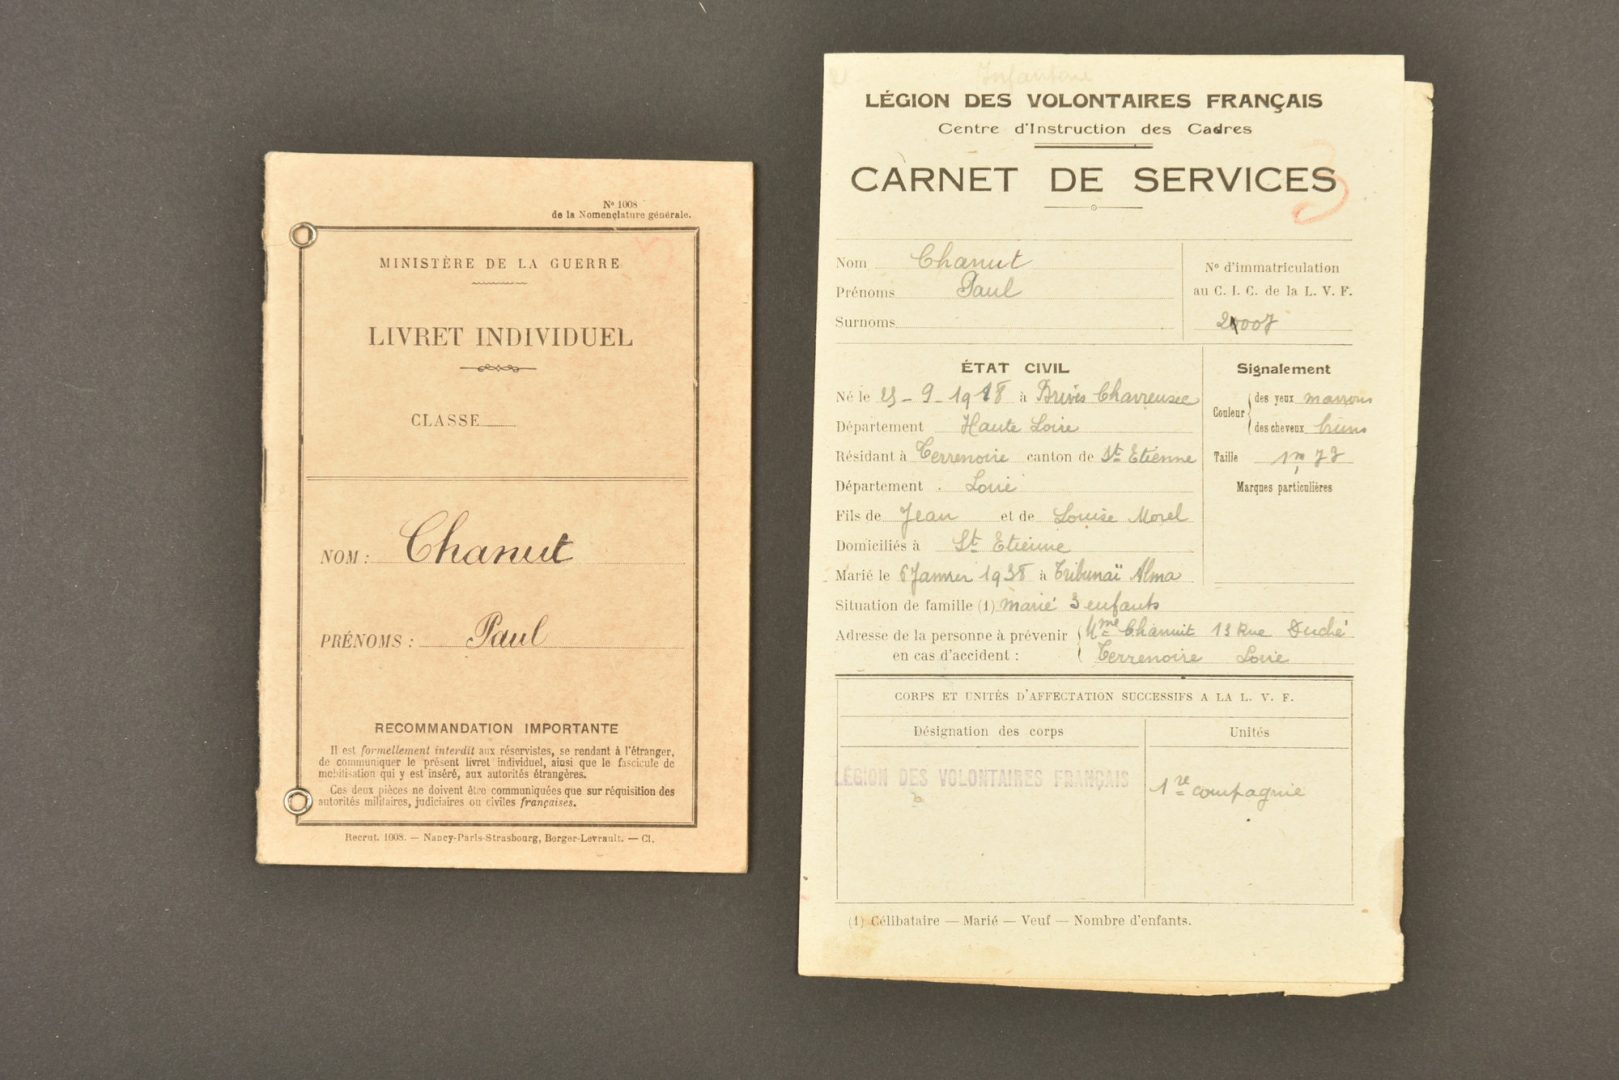 Nº 1008
de la Nomenclature générale.
MINISTÈRE DE LA GUERRE
LIVRET INDIVIDUEL
CLASSE
NOM : Chanut
PRÉNOMS : Paul
RECOMMANDATION IMPORTANTE
Il est formellement interdit aux réservistes, se rendant à l'étranger,
de communiquer le présent livret individuel, ainsi que le fascicule de
mobilisation qui y est inséré, aux autorités étrangères.
Ces deux pièces ne doivent être communiquées que sur réquisition des
autorités militaires, judiciaires ou civiles françaises.
Recrut. 1008. — Nancy-Paris-Strasbourg, Berger-Levrault. — Cl.
Infanterie
LÉGION DES VOLONTAIRES FRANÇAIS
Centre d'Instruction des Cadres
CARNET DE SERVICES
3
Nom Chanut
Prénoms Paul
Surnoms
Nº d'immatriculation
au C. I. C. de la L. V. F.
ÉTAT CIVIL
Né le 25 - 9 - 1918 à Brives Charensac
Département Haute Loire
Résidant à Terrenoire canton de St Etienne
Département Loire
Fils de Jean et de Louise Morel
Domiciliés à St Etienne
Marié le 6 Janvier 1938 à Alma
Situation de famille (1) marié 3 enfants
Adresse de la personne à prévenir Mme Chanut 13 Rue Duché
en cas d'accident : Terrenoire Loire
Signalement
Couleur des yeux marrons
des cheveux bruns
Taille 1m77
Marques particulières
CORPS ET UNITÉS D'AFFECTATION SUCCESSIFS A LA L. V. F.
Désignation des corps Unités
LÉGION DES VOLONTAIRES FRANÇAIS 1re compagnie
(1) Célibataire — Marié — Veuf — Nombre d'enfants.